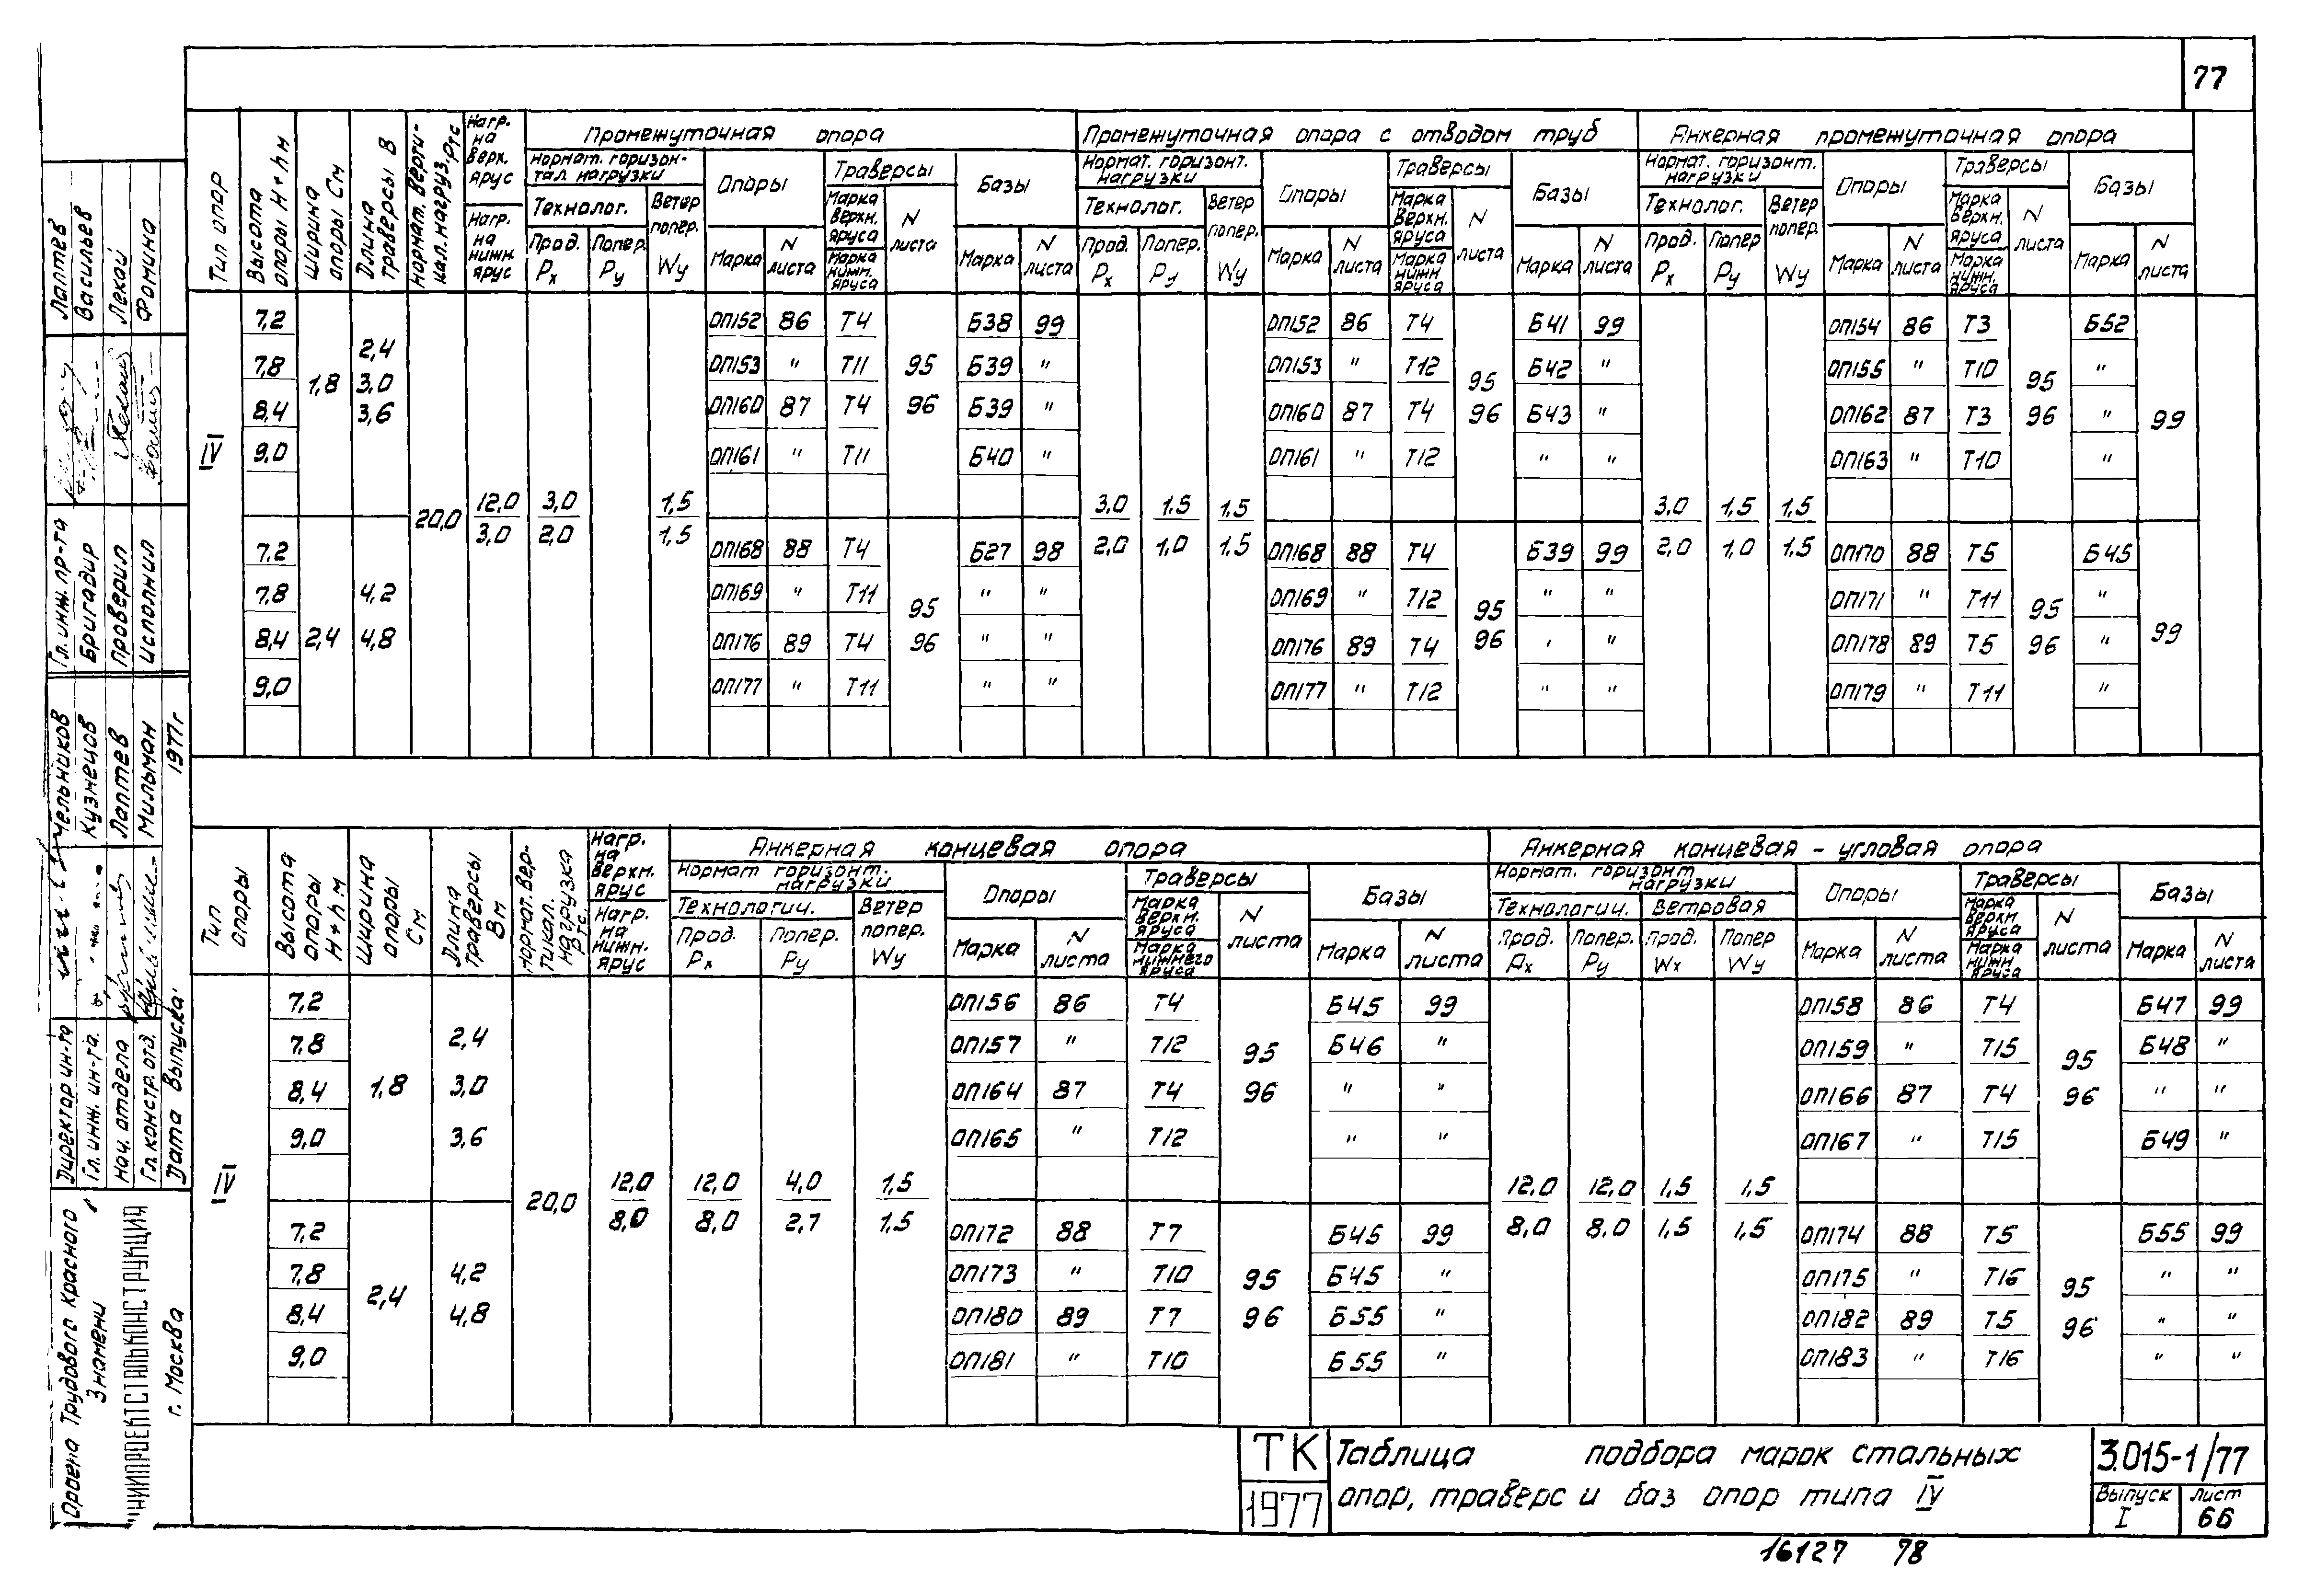 77
Тип опор
Высота опоры H+h м
Ширина опоры См
Длина траверсы В
Нормат. верти-кал. нагруз. Pтс
Нагр. на верх. ярус
Нагр. на нижн. ярус
Промежуточная опора
Промежуточная опора с отводом труб
Анкерная промежуточная опора
Нормат. горизон-тал. нагрузки Опоры Траверсы Базы
Нормат. горизонт. нагрузки Опоры Траверсы Базы
Нормат. горизонт. нагрузки Опоры Траверсы Базы
Технолог. Ветер попер. Марка верхн. яруса N листа
Технолог. Ветер попер. Марка верхн. яруса N листа
Технолог. Ветер попер. Марка верхн. яруса N листа
Прод. Px Попер. Py Wy Марка N листа Марка нижн. яруса Марка N листа
Прод. Px Попер. Py Wy Марка N листа Марка нижн яруса Марка N листа
Прод. Px Попер Py Wy Марка N листа Марка нижн. яруса Марка N листа
7,2 ОП152 86 Т4 Б38 99 ОП152 86 Т4 Б41 99 ОП154 86 Т3 Б52
7,8 2,4 ОП153 " Т11 95 Б39 " ОП153 " Т12 95 Б42 " ОП155 " Т10 95 "
1,8 3,0
8,4 3,6 ОП160 87 Т4 96 Б39 " ОП160 87 Т4 96 Б43 " ОП162 87 Т3 96 " 99
IV 9,0 ОП161 " Т11 Б40 " ОП161 " Т12 " " ОП163 " Т10 "
20,0 12,0 3,0 1,5 3,0 1,5 1,5 3,0 1,5 1,5
3,0 2,0 1,5 2,0 1,0 1,5 2,0 1,0 1,5
7,2 ОП168 88 Т4 Б27 98 ОП168 88 Т4 Б39 99 ОП170 88 Т5 Б45
7,8 4,2 ОП169 " Т11 95 " " ОП169 " Т12 95 " " ОП171 " Т11 95 "
8,4 2,4 4,8 ОП176 89 Т4 96 " " ОП176 89 Т4 96 " " ОП178 89 Т5 96 " 99
9,0 ОП177 " Т11 " " ОП177 " Т12 " " ОП179 " Т11 "
Тип опоры
Высота опоры H+h м
Ширина опоры См
Длина траверсы Вм
Нормат. вер-тикал. нагрузка Pтс.
Нагр. на верхн. ярус
Нагр. на нижн. ярус
Анкерная концевая опора
Анкерная концевая - угловая опора
Нормат горизонт. нагрузки Опоры Траверсы Базы
Нормат. горизонт нагрузки Опоры Траверсы Базы
Технологич. Ветер попер. Марка верхн. яруса N листа
Технологич. Ветровая Марка верхн. яруса N листа
Прод. Px Попер. Py Wy Марка N листа Марка нижнего яруса Марка N листа
Прод. Px Попер. Py Прод. Wx Попер Wy Марка N листа Марка нижн яруса Марка N листа
7,2 ОП156 86 Т4 Б45 99 ОП158 86 Т4 Б47 99
7,8 2,4 ОП157 " Т12 95 Б46 " ОП159 " Т15 95 Б48 "
8,4 1,8 3,0 ОП164 87 Т4 96 " " ОП166 87 Т4 96 " "
9,0 3,6 ОП165 " Т12 " " ОП167 " Т15 Б49 "
IV 20,0 12,0 12,0 4,0 1,5 12,0 12,0 1,5 1,5
8,0 8,0 2,7 1,5 8,0 8,0 1,5 1,5
7,2 ОП172 88 Т7 Б45 99 ОП174 88 Т5 Б55 99
7,8 4,2 ОП173 " Т10 95 Б45 " ОП175 " Т16 95 " "
8,4 2,4 4,8 ОП180 89 Т7 96 Б55 " ОП182 89 Т5 96 " "
9,0 ОП181 " Т10 Б55 " ОП183 " Т16 " "
ТК Таблица подбора марок стальных
1977 опор, траверс и баз опор типа IV
3.015-1/77
Выпуск I
Лист 66
16127 78
Гл. инж. пр-та Лаптев
Бригадир Васильев
Проверил Лекай
Исполнил Фомина
Директор ин-та Мельников
Гл. инж. ин-та. Кузнецов
Нач. отдела Лаптев
Гл. констр. отд. Мильман
Дата выпуска: 1977г
Ордена Трудового Красного
Знамени
ЦНИИПРОЕКТСТАЛЬКОНСТРУКЦИЯ
г. Москва